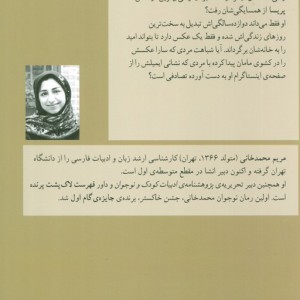 پریسا از همسایگی‌شان رفت؟
او فقط می‌داند دوازده‌سالگی‌اش تبدیل به سخت‌ترین
روزهای زندگی‌اش شده و فقط یک عکس دارد تا بتواند امید
را به خانه‌شان برگرداند. آیا شباهت مردی که سارا عکسش
را در کشوی مامان پیدا کرده با مردی که نشانی ایمیلش را از
صفحه‌ی اینستاگرام او به دست آورده تصادفی است؟
مریم محمدخانی (متولد ۱۳۶۶، تهران) کارشناسی ارشد زبان و ادبیات فارسی را از دانشگاه
تهران گرفته و اکنون دبیر انشا در مقطع متوسطه‌ی اول است.
او همچنین دبیر تحریریه‌ی پژوهشنامه‌ی ادبیات کودک و نوجوان و داور فهرست لاک‌پشت پرنده
است. اولین رمان نوجوان محمدخانی، جشن خاکستر، برنده‌ی جایزه‌ی گام اول شد.